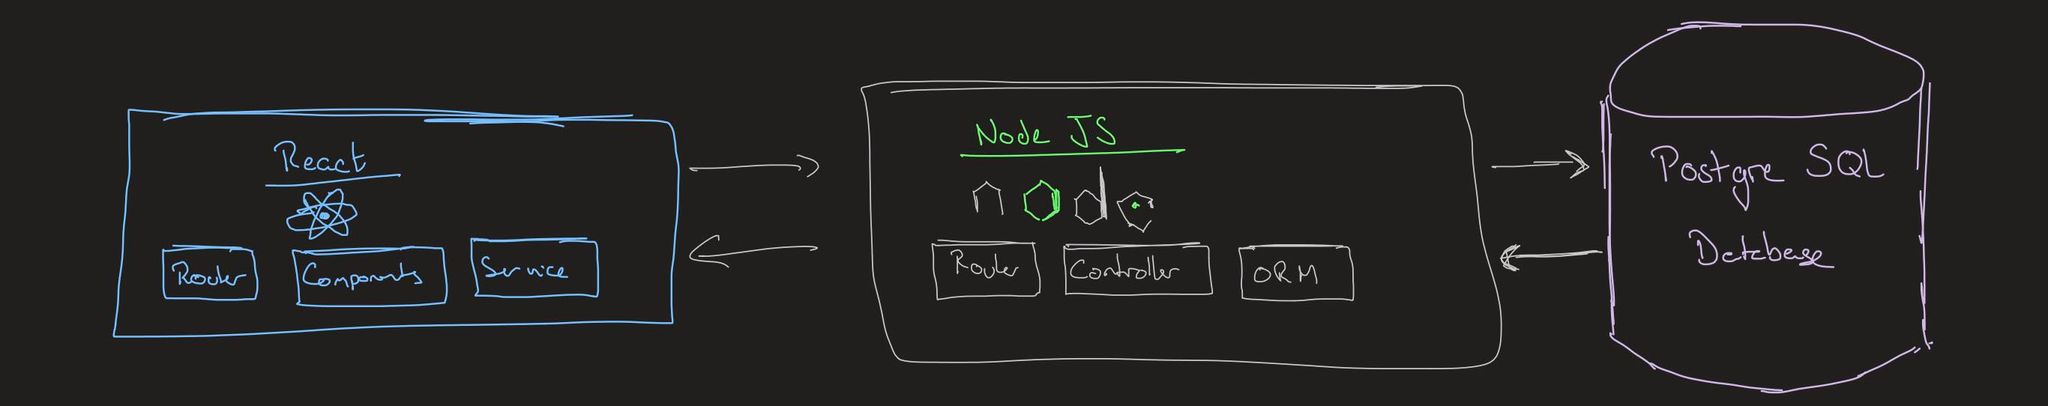 React
Router
Components
Service
Node JS
node
Router
Controller
ORM
Postgre SQL
Database